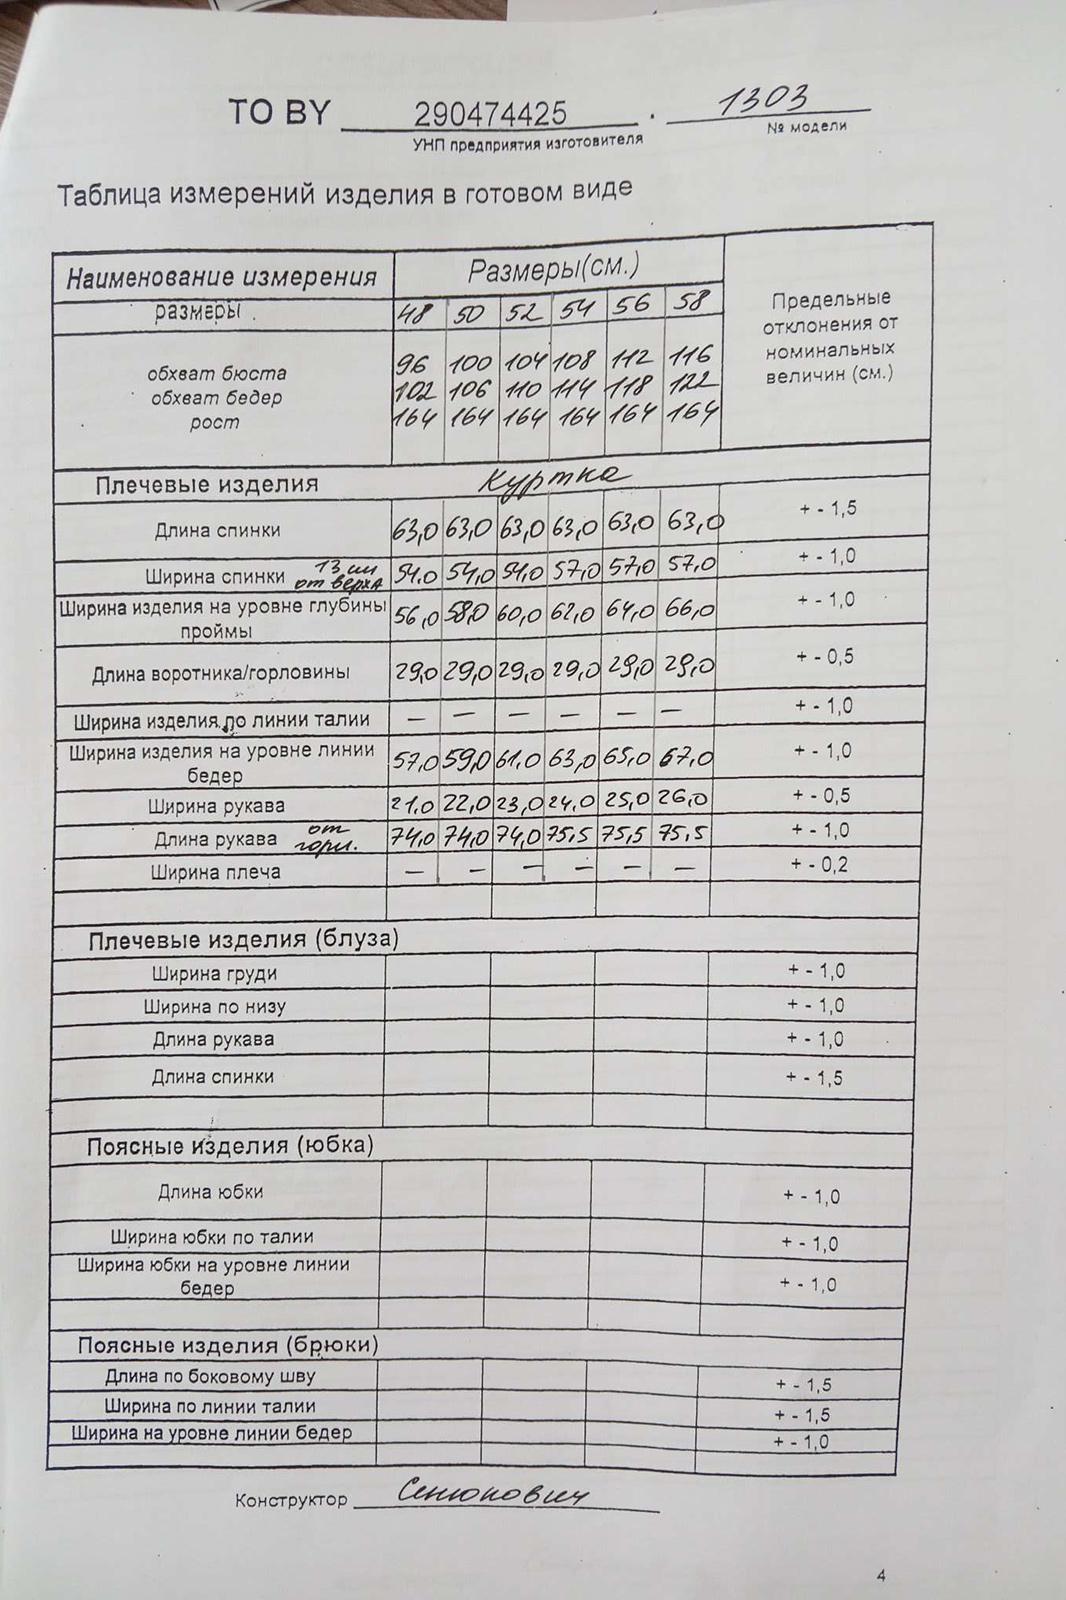 ТО BY 290474425 . 1303
УНП предприятия изготовителя № модели
Таблица измерений изделия в готовом виде
Наименование измерения Размеры(см.) Предельные отклонения от номинальных величин (см.)
размеры 48 50 52 54 56 58
обхват бюста 96 100 104 108 112 116
обхват бедер 102 106 110 114 118 122
рост 164 164 164 164 164 164
Плечевые изделия Куртка
Длина спинки 63,0 63,0 63,0 63,0 63,0 63,0 + - 1,5
Ширина спинки 13 см от верха 54.0 54,0 54,0 57,0 57,0 57,0 + - 1,0
Ширина изделия на уровне глубины
проймы 56,0 58,0 60,0 62,0 64,0 66,0 + - 1,0
Длина воротника/горловины 29,0 29,0 29,0 29,0 29,0 29,0 + - 0,5
Ширина изделия по линии талии — — — — — — + - 1,0
Ширина изделия на уровне линии
бедер 57,0 59,0 61,0 63,0 65,0 67,0 + - 1,0
Ширина рукава 21.0 22,0 23,0 24,0 25,0 26,0 + - 0,5
Длина рукава от горл. 74,0 74,0 74,0 75,5 75,5 75,5 + - 1,0
Ширина плеча — — — — — — + - 0,2
Плечевые изделия (блуза)
Ширина груди + - 1,0
Ширина по низу + - 1,0
Длина рукава + - 1,0
Длина спинки + - 1,5
Поясные изделия (юбка)
Длина юбки + - 1,0
Ширина юбки по талии + - 1,0
Ширина юбки на уровне линии
бедер + - 1,0
Поясные изделия (брюки)
Длина по боковому шву + - 1,5
Ширина по линии талии + - 1,5
Ширина на уровне линии бедер + - 1,0
Конструктор Сенюкович
4